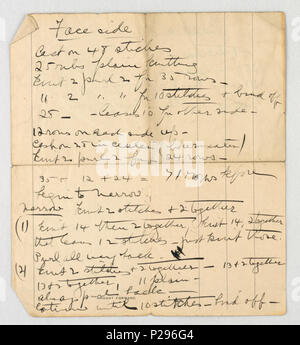 Face side
Cast on 48 stitches
25 ribs plain knitting
Knit 2 purl 2 for 35 rows -
" 2 " " for 10 stitches + bind off
25 - Leaves 10 for other side -
12 rows on each side up -
Cast on 25 in center
Knit 2 purl 2 rows -
35 + 12 + 24 = 71 rows before
begin to narrow.
Narrow Knit 2 stitches + 2 together
(1) Knit 14 then 2 together, Knit 14, 2 together
that leaves 12 stitches - just knit those
Purl all way back.
(2) Knit 2 stitches + 2 together - 13 + 2 together
13 + 2 together, 11 plain -
always purl back
until 10 stitches - bind off -
P296G4